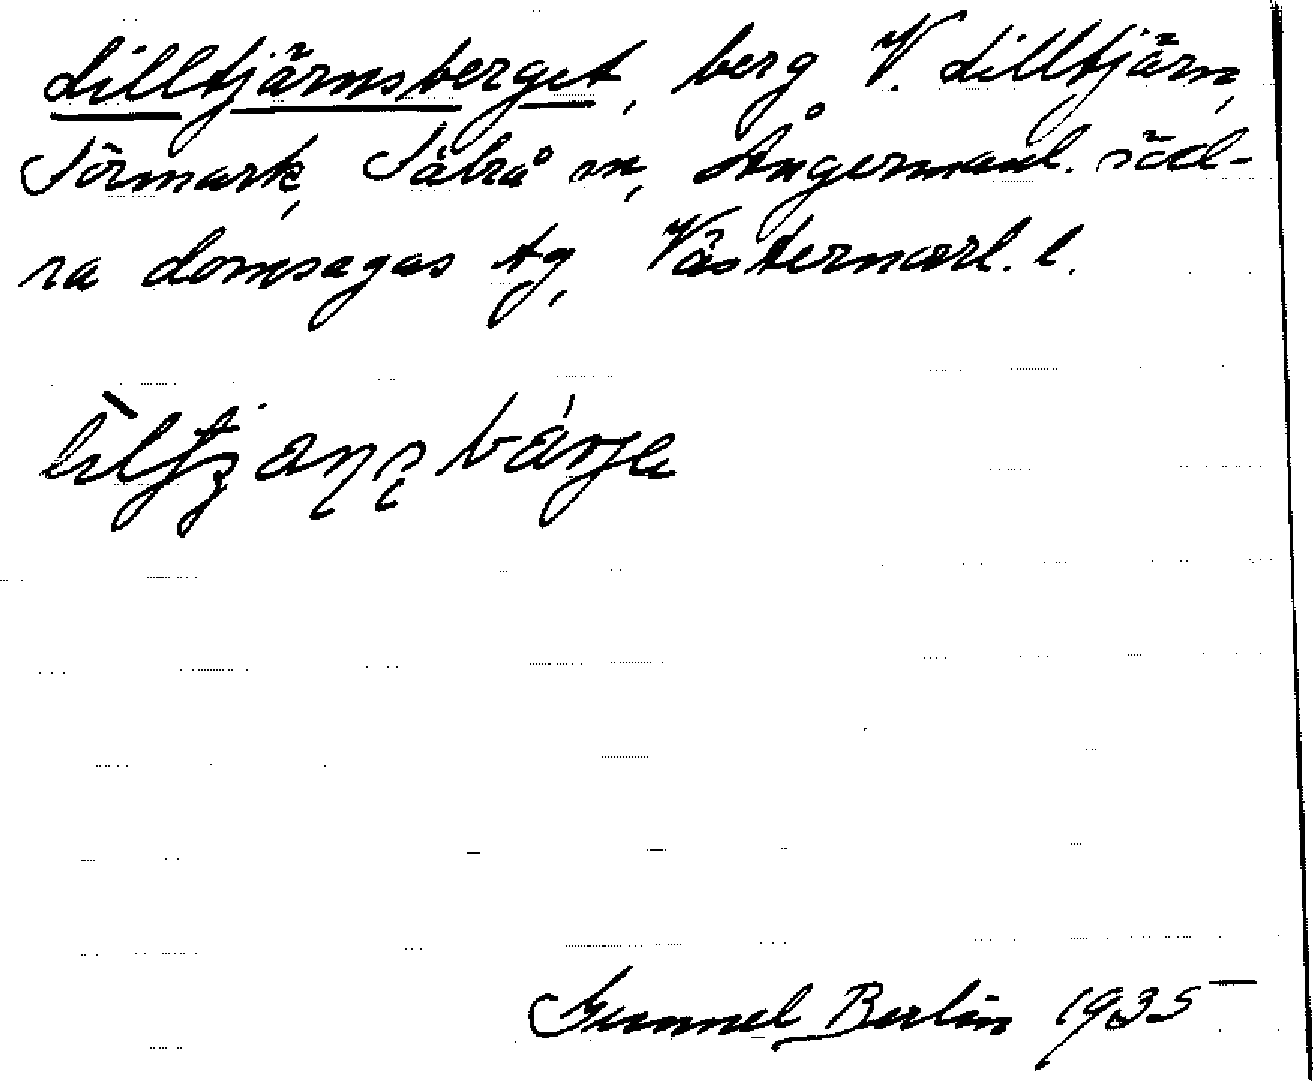 Lilltjärnsberget, berg V. Lilltjärn,
Sörmark, Säbrå sn, Ångermanl. söd-
ra domsagas tg, Västernorrl. l.
Gunnel Berlin 1935